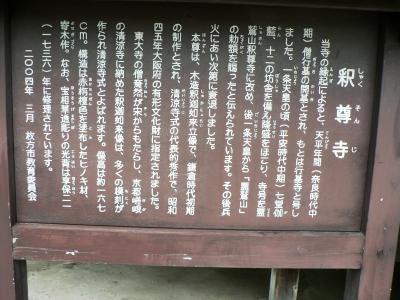 釈尊寺
しゃくそんじ
当寺の縁起によると、天平年間（奈良時代中
期）僧行基の開基とされ、もとは行基寺と号し
ました。一条天皇の頃（平安時代中期）七堂伽
藍、十二の坊舎を備え隆盛をほこり、寺号を霊
鷲山釈尊寺に改め、後一条天皇から「霊鷲山」
の勅額を賜ったと伝えられています。その後兵
火にあい次第に衰退しました。
本尊は、木造釈迦如来立像で、鎌倉時代初期
の制作とされ、清涼寺式の代表的秀作で、昭和
四五年大阪府の有形文化財に指定されました。
東大寺の僧奝然が宋からもたらし、京都嵯峨
の清涼寺に納めた釈迦如来像は、多くの模刻が
作られ清涼寺式とよばれます。像高は約一六七
cm。構造は赤栴檀色を塗布したヒノキ材、
寄木作。なお、宝相華透彫りの光背は享保二一
（一七三六）年に修理されています。
二〇〇四年 三月 枚方市教育委員会